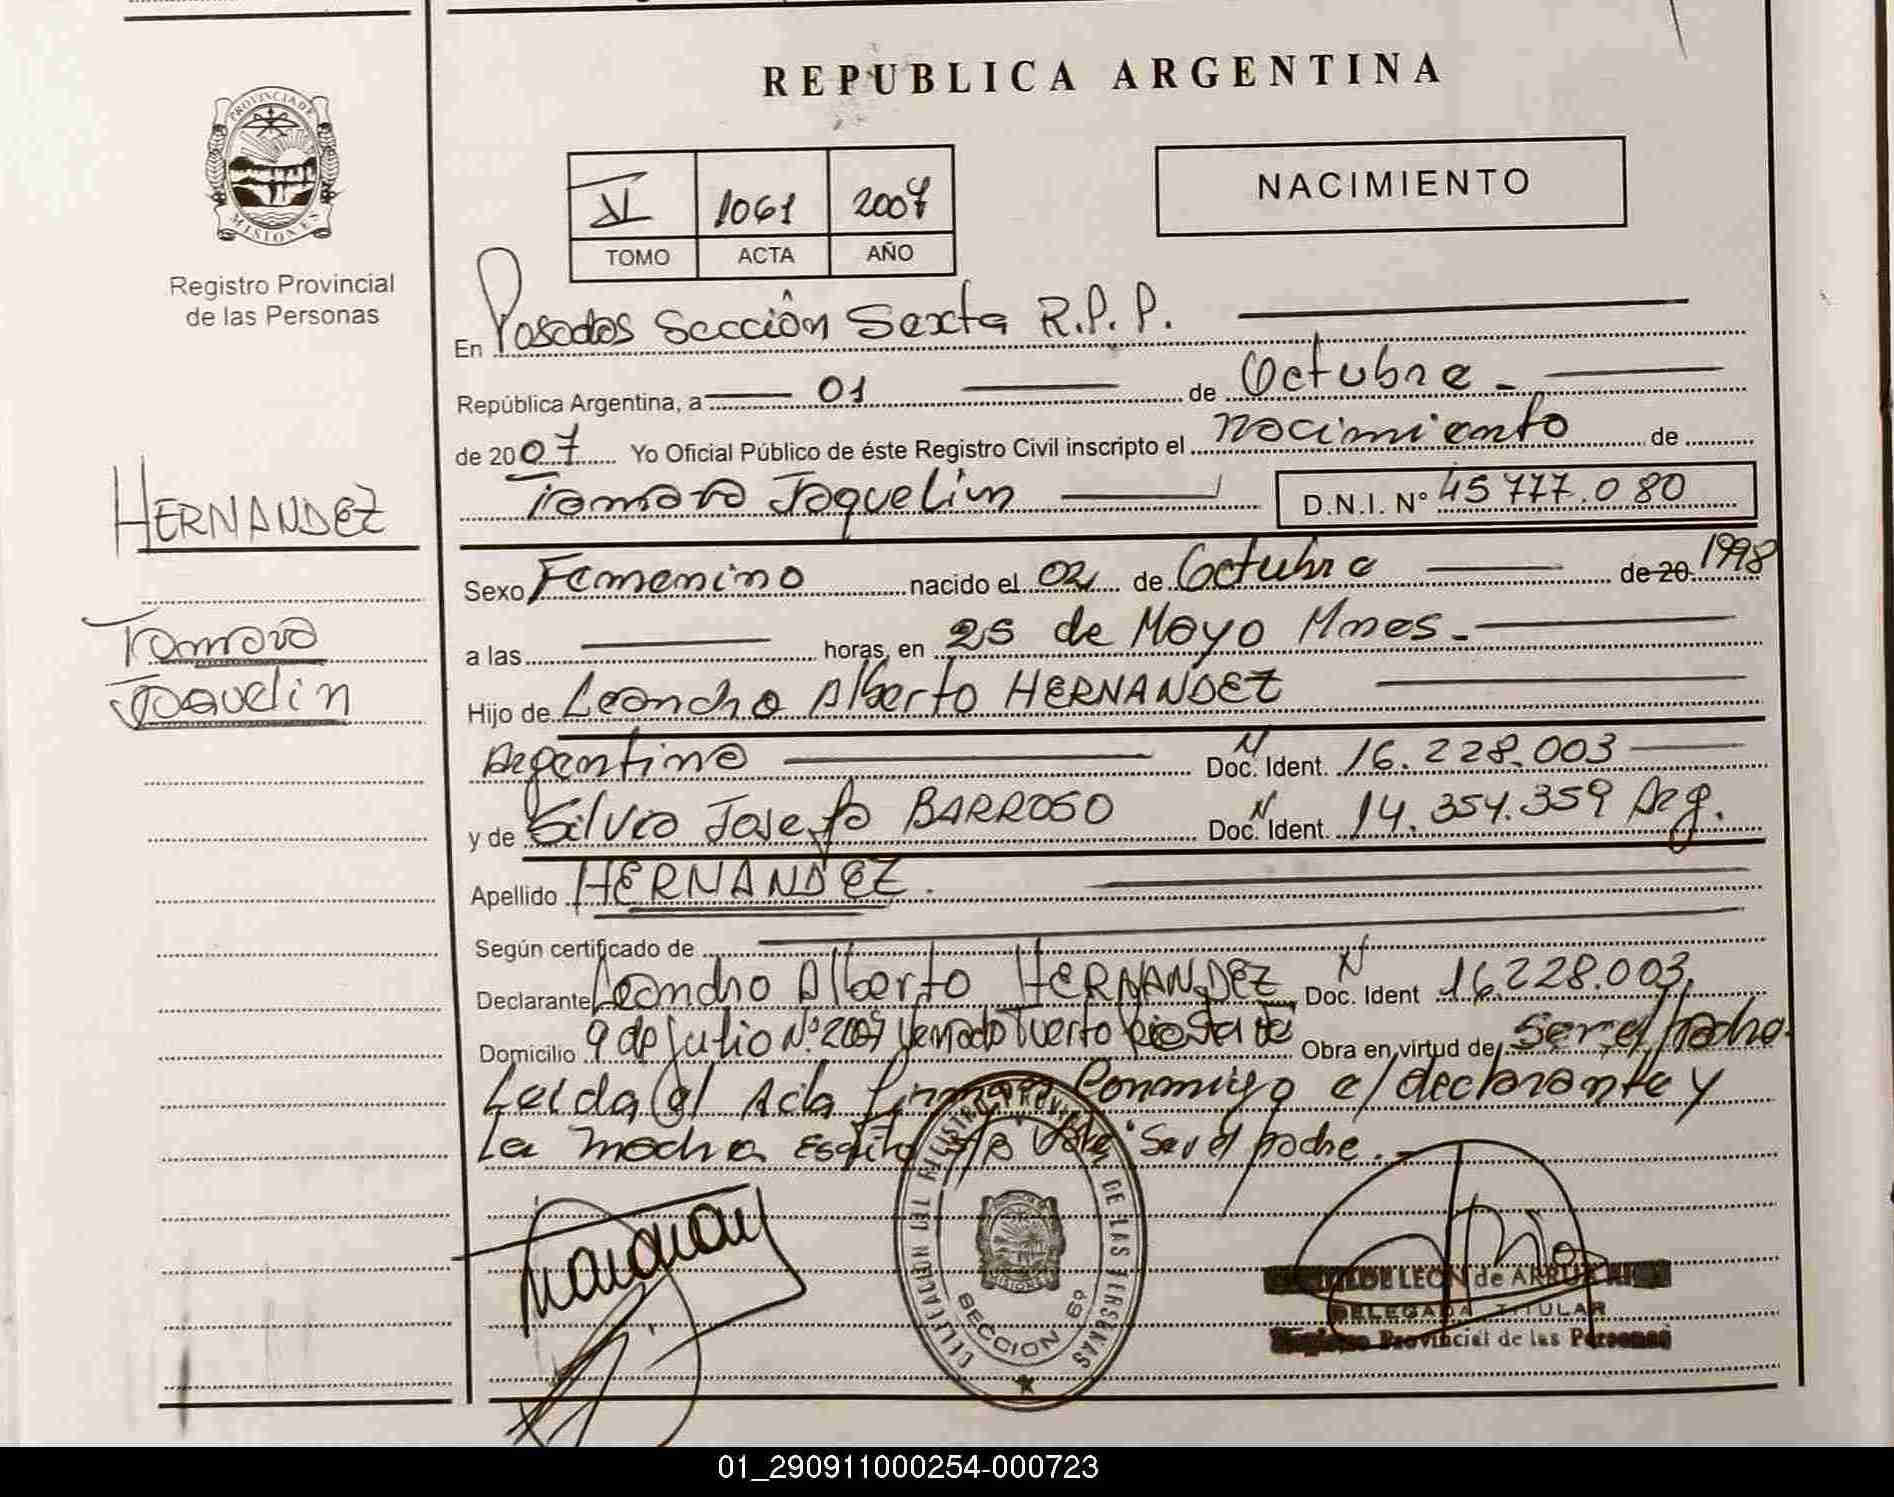 REPUBLICA ARGENTINA
PROVINCIA DE
MISIONES
Registro Provincial
de las Personas
VI 1061 2007
TOMO ACTA AÑO
NACIMIENTO
En Posadas Sección Sexta R.P.P.
República Argentina, a 01 de Octubre -
de 2007 Yo Oficial Público de éste Registro Civil inscripto el nacimiento de
Tamara Jaquelin D.N.I. Nº 45 777.080
HERNANDEZ
Tamara
Jaquelin
Sexo Femenino nacido el 02 de Octubre de 20 1998
a las horas, en 25 de Mayo Mnes -
Hijo de Leandro Alberto HERNANDEZ
Argentino Doc. Ident. N 16.228.003
y de Silvia Josefa BARROSO Doc. Ident. N 14.354.359 Arg.
Apellido HERNANDEZ.
Según certificado de
Declarante Leandro Alberto HERNANDEZ Doc. Ident N 16.228.003.
Domicilio 9 de Julio Nº 2007 Venado Tuerto Obra en virtud de Ser el Padre.
Leida el Acta firma conmigo el declarante y
la madre Vale: Ser el padre. -
REGISTRO DE LAS PERSONAS
SECCION 6º
DE LEON de
DELEGADA TITULAR
Registro Provincial de las Personas
01_290911000254-000723